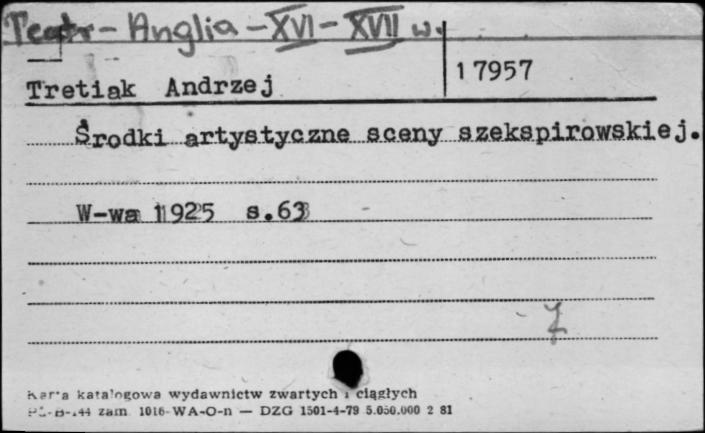 Teatr - Anglia - XVI - XVII w.
17957
Tretiak Andrzej
Środki artystyczne sceny szekspirowskiej.
W-wa 1925 s.63
Karta katalogowa wydawnictw zwartych i ciągłych
zam. 1016-WA-O-n — DZG 1501-4-79 5.050.000 2 81